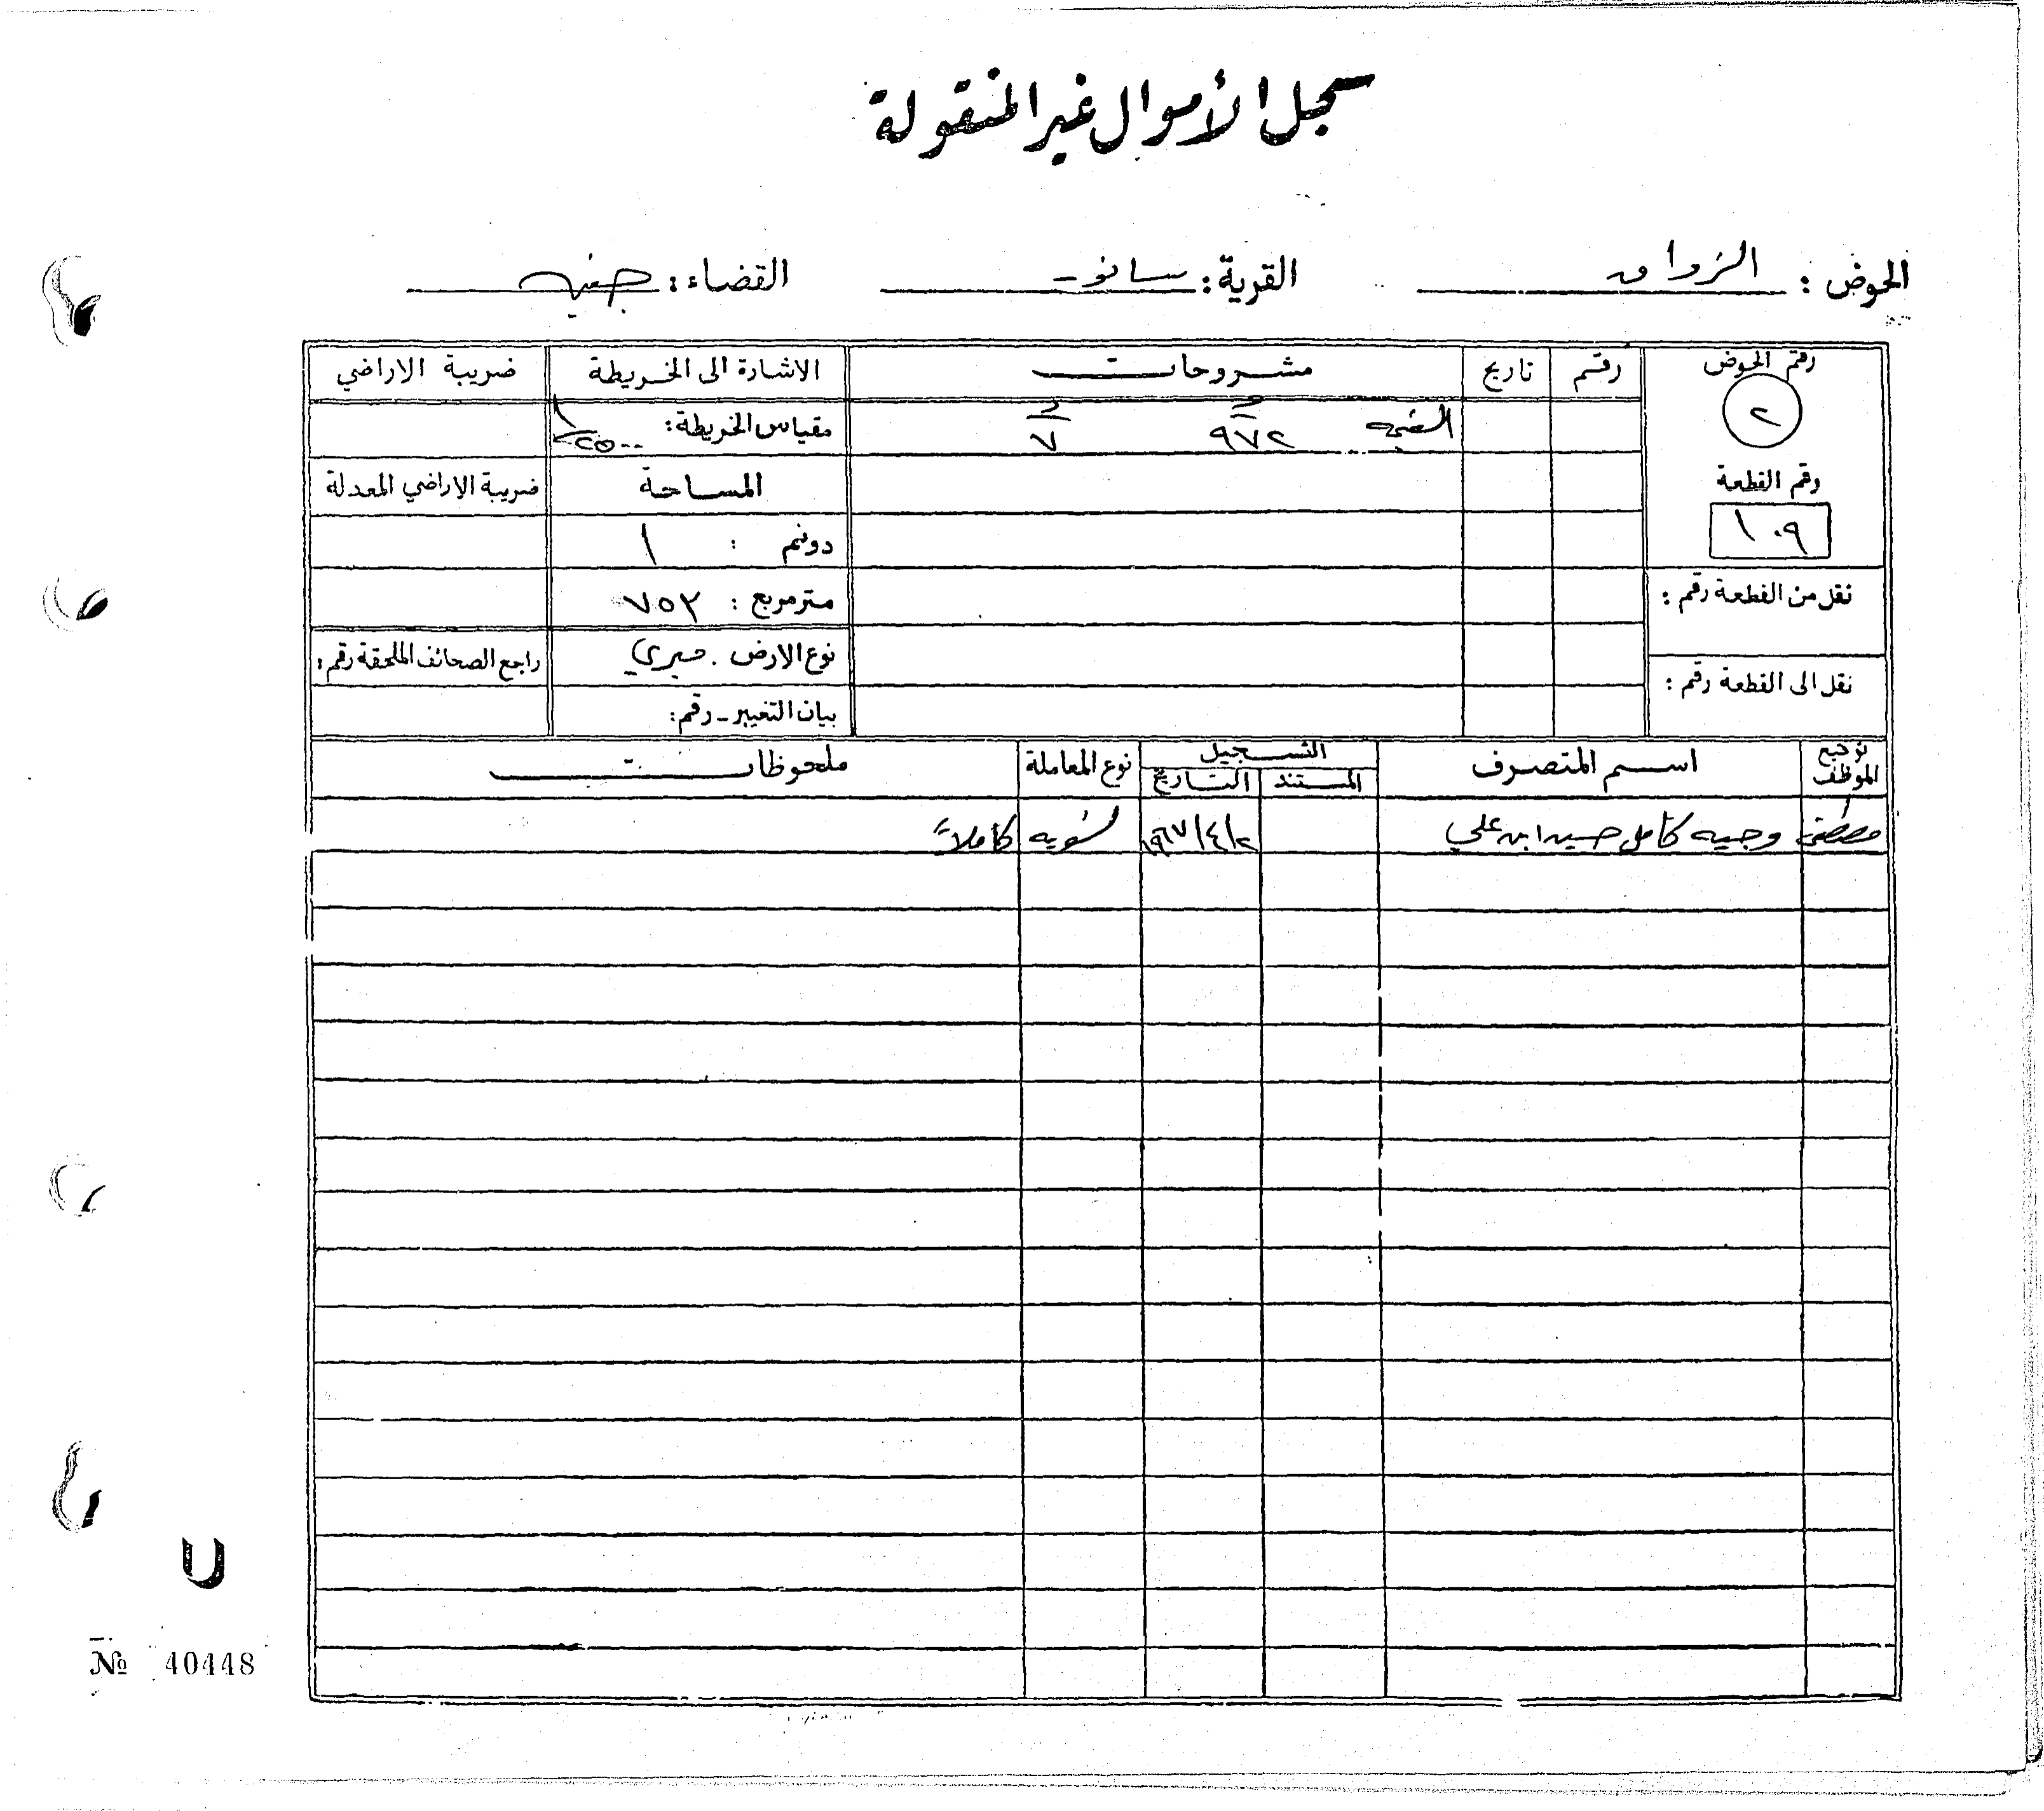 سجل الأموال غير المنقولة
الحوض : الزواق القرية : سانور القضاء : جنين
رقم الحوض رقم تاريخ مشروحات الاشارة الى الخريطة ضريبة الاراضي
٢ القيمة ٩٧٢ د ٧ مقياس الخريطة : ١/٢٥٠٠
رقم القطعة المساحة ضريبة الاراضي المعدلة
١٠٩ دونم : ١
نقل من القطعة رقم : متر مربع : ٧٥٣
نوع الارض . ميري راجع الصحائف الملحقة رقم :
نقل الى القطعة رقم : بيان التغيير - رقم :
توقيع الموظف اسم المتصرف التسجيل نوع المعاملة ملحوظات
المستند التاريخ
مصطفى وجيه كامل حسين ابن علي ١٩٦٧/٤/٢ تسويه كاملاً
№ 40448